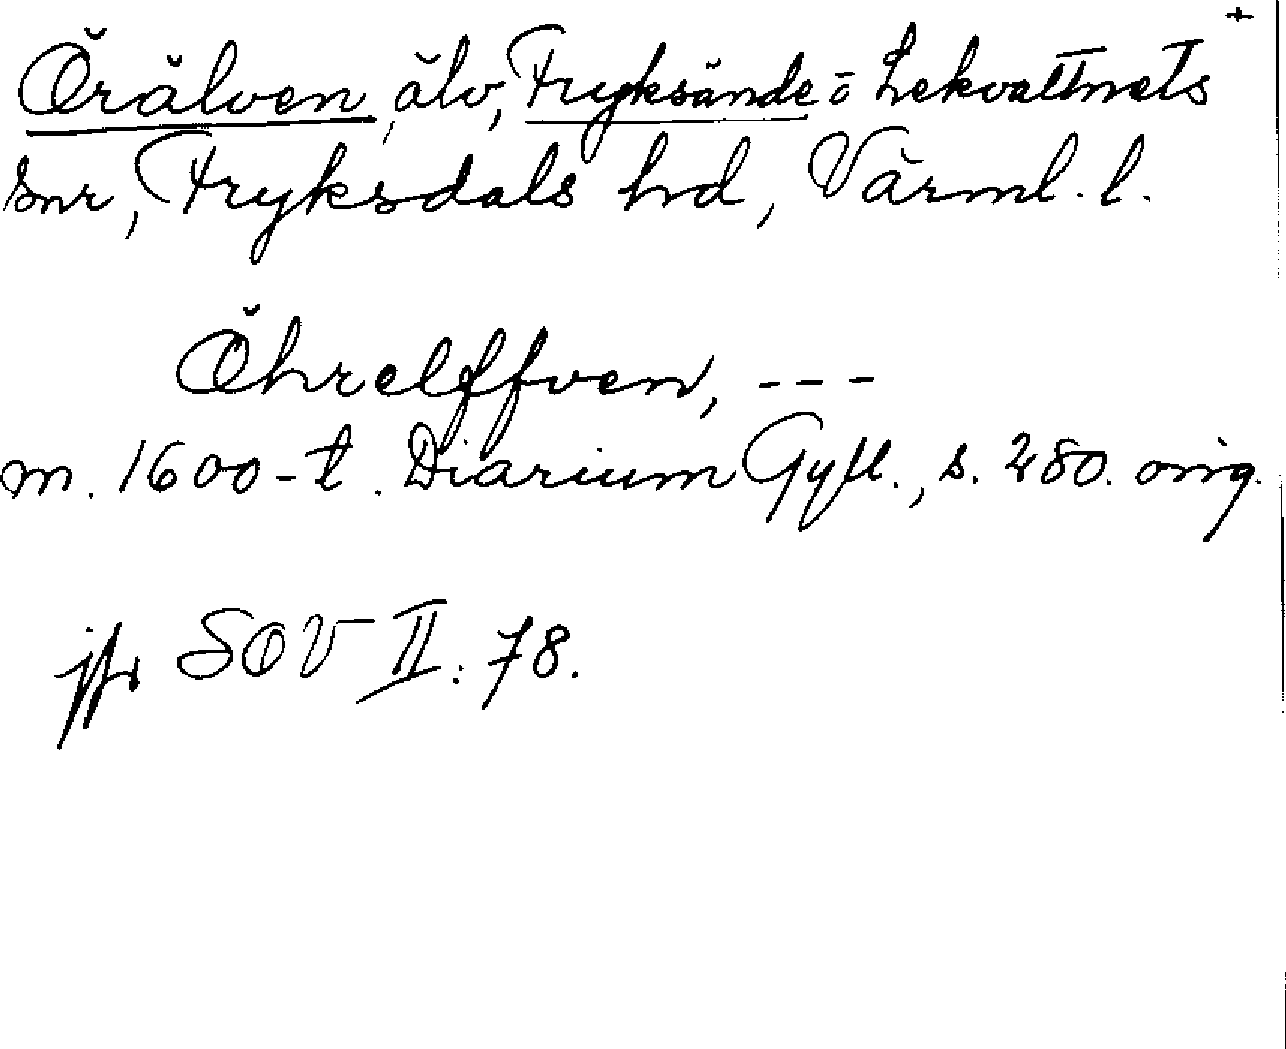 +
Örälven, älv, Fryksände o Lekvattnets
snr, Fryksdals hd, Värml. l.
Öhrelffven, ---
m. 1600-t. Diarium Gyll., s. 280. orig.
jfr SOV II: 78.